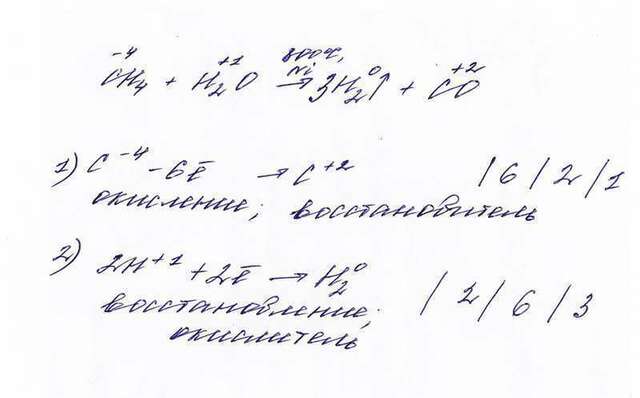 -4 +1 800°C, 0 +2
CH₄ + H₂O →Ni 3H₂↑ + CO
1) C⁻⁴ -6ē → C⁺² / 6 / 2 / 1
окисление; восстановитель
2) 2H⁺¹ +2ē → H₂⁰ / 2 / 6 / 3
восстановление;
окислитель